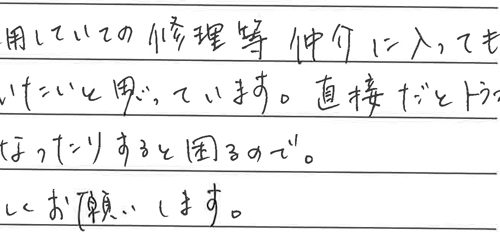 用していての修理等 仲介に入っても
いたいと思っています。直接だとトラ
なったりすると困るので。
しくお願いします。